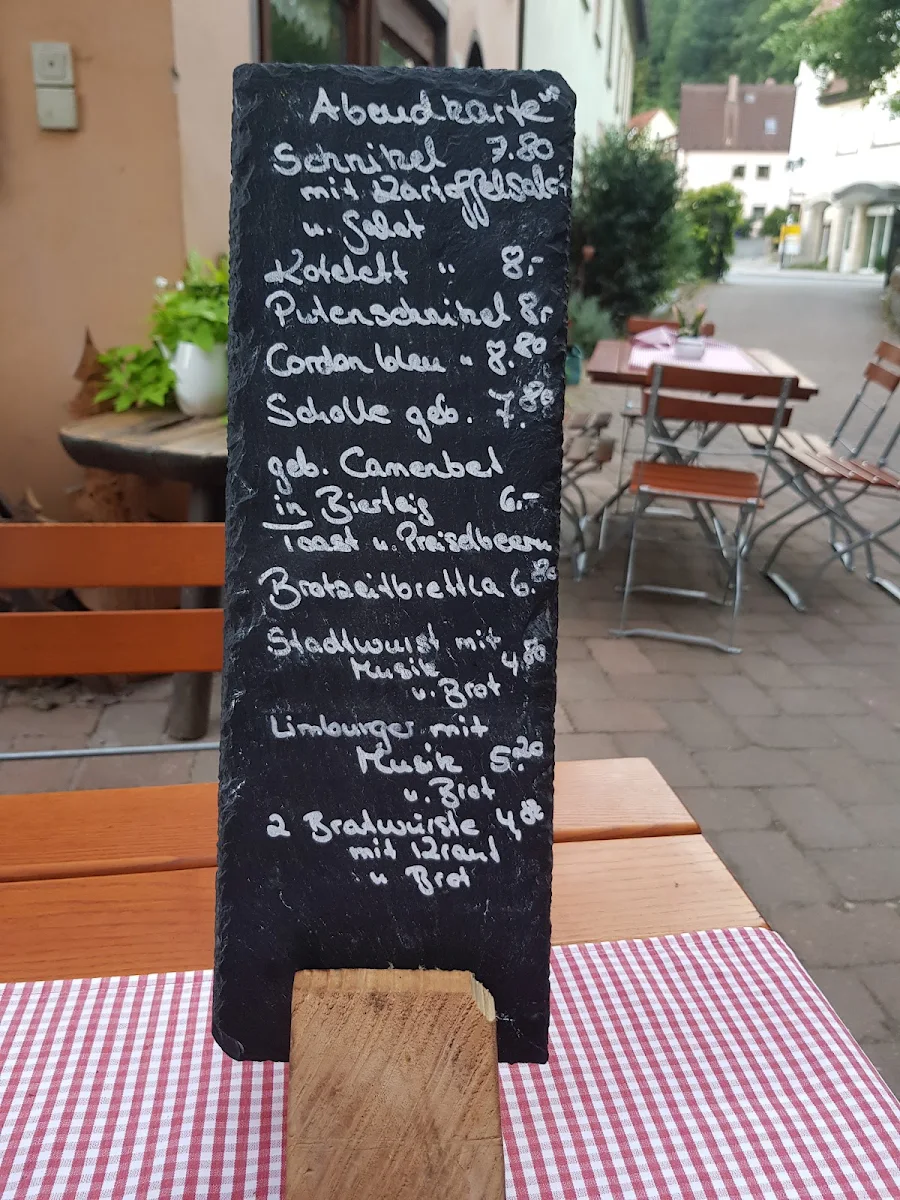 Abendkarte
Schnitzel 7.80
mit Kartoffelsala
u. Salat
Kotelett " 8.-
Putenschnitzel 8.-
Cordon bleu " 8.80
Scholle geb. 7.80
geb. Camenbet
in Bierteig 6.-
Toast u. Preiselbeern
Brotzeitbrettla 6.80
Stadtwurst mit
Musik 4,80
u. Brot
Limburger mit
Musik 5.20
u. Brot
2 Bratwürste 4,80
mit Kraut
u Brot